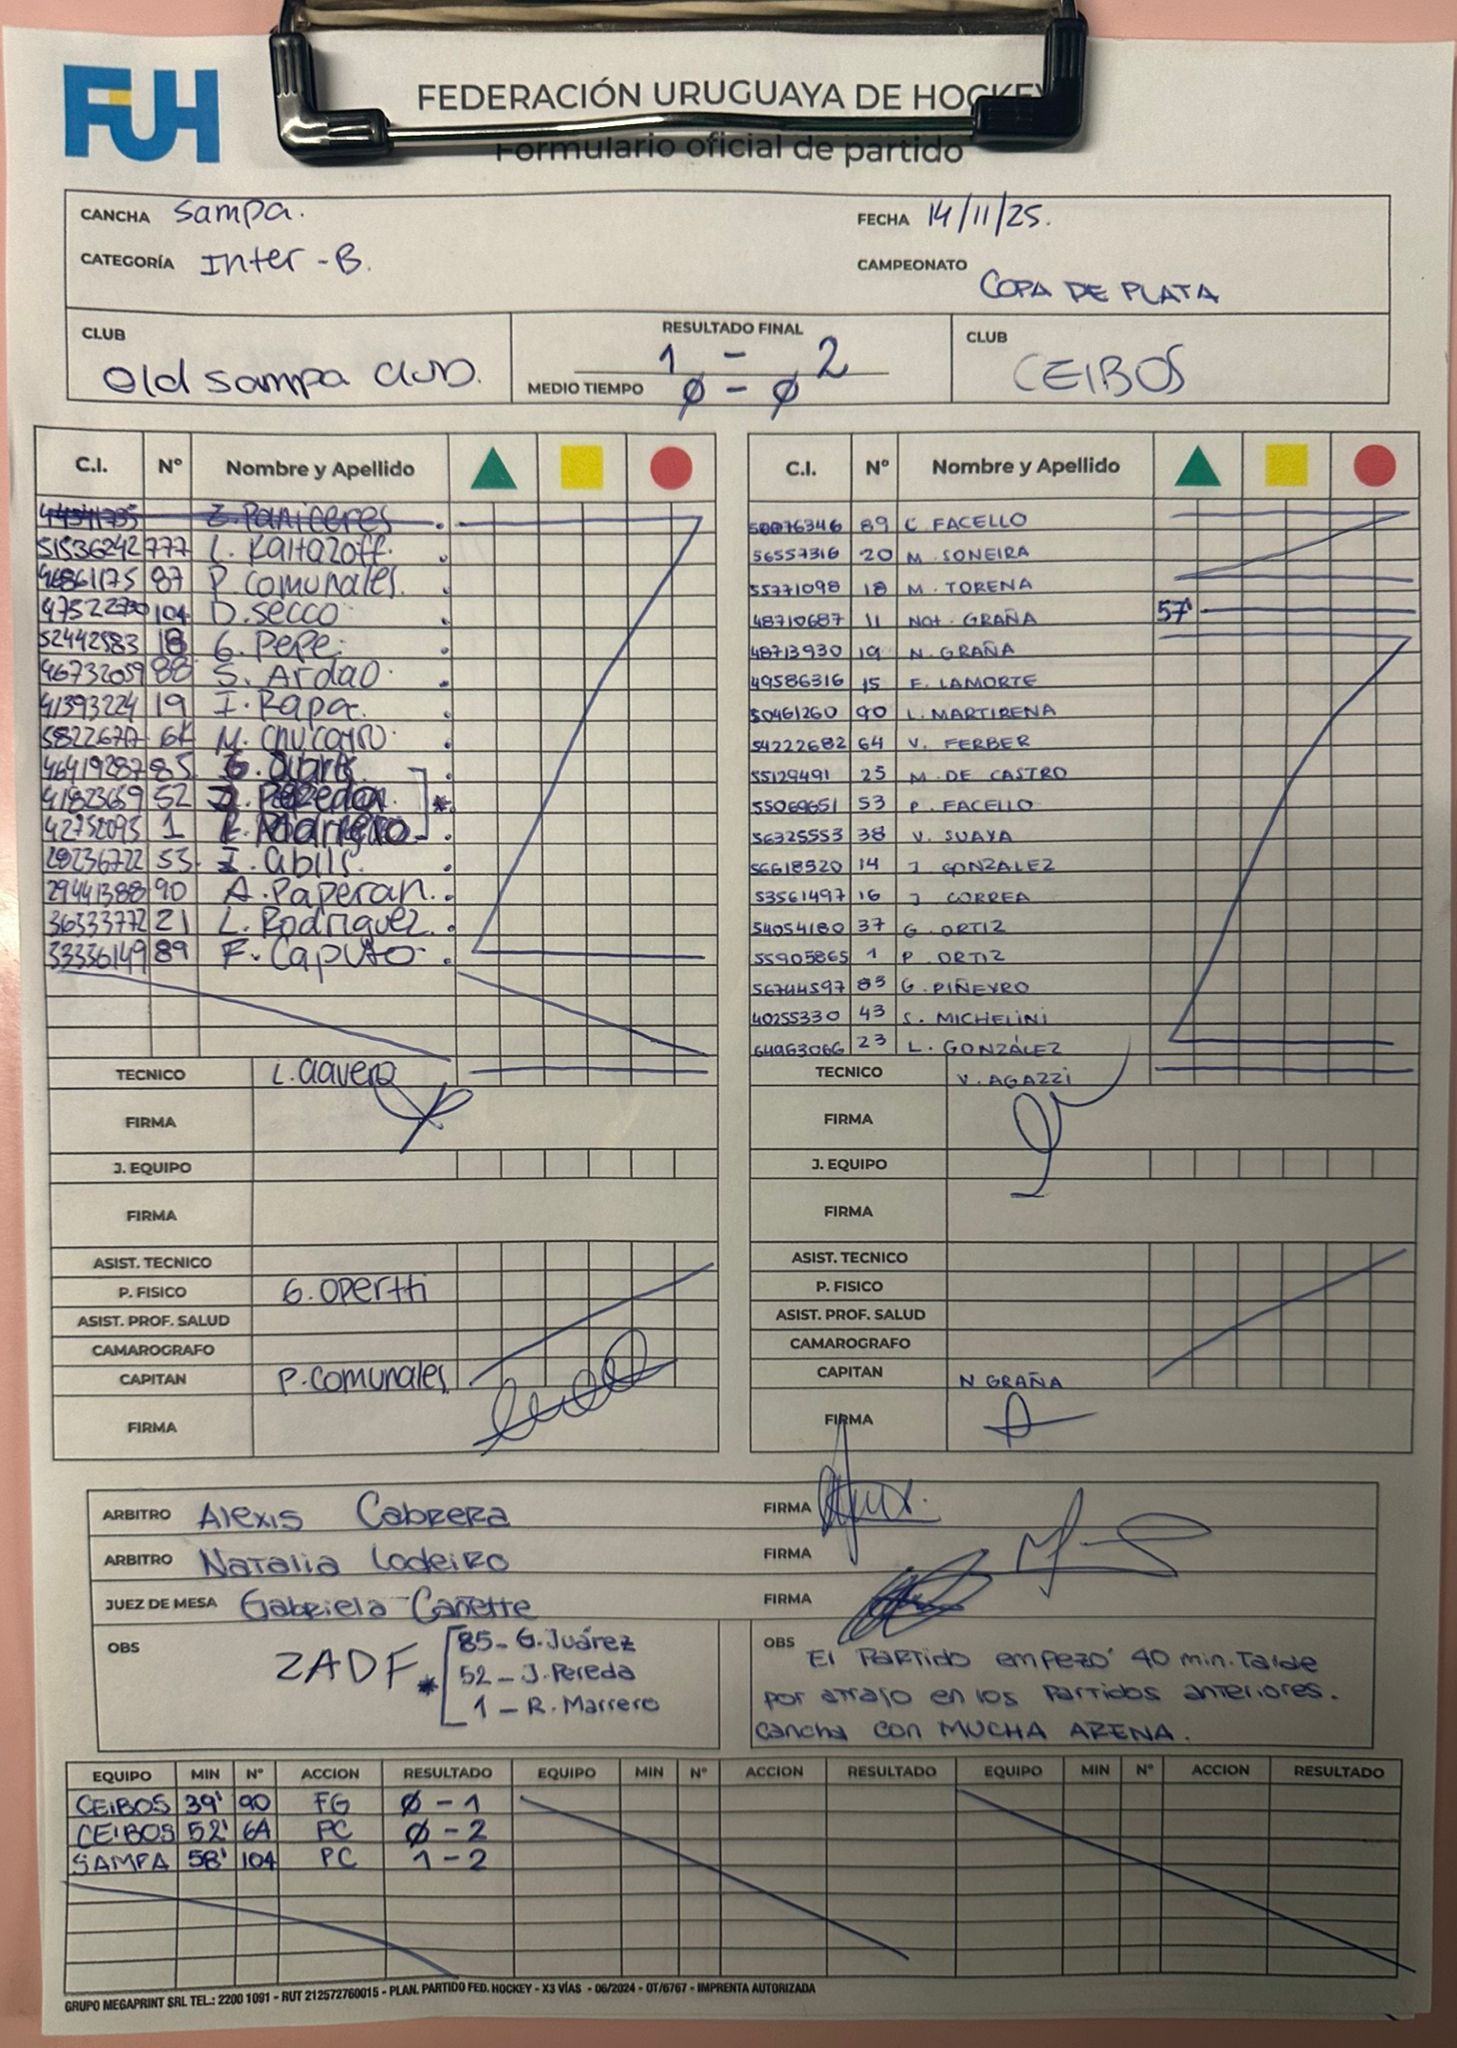 FUH
FEDERACIÓN URUGUAYA DE HOCKEY
Formulario oficial de partido
CANCHA Sampa. FECHA 14/11/25.
CATEGORÍA Inter-B. CAMPEONATO COPA DE PLATA
CLUB RESULTADO FINAL CLUB
Old Sampa Club. 1 - 2 CEIBOS
MEDIO TIEMPO Ø - Ø
C.I. Nº Nombre y Apellido
44341735 Z. Paniceres
51536242 777 L. Kaitazoff.
46861175 87 P. Comunales.
47522730 104 D. Secco
52442583 18 G. Pepe.
46732059 88 S. Ardao.
41393224 19 I. Rapa.
5822677 64 M. Chucarro.
46419287 85
41823659 52
42752093 1 R. Marrero
28236722 53. I. abils.
29441388 90 A. Paperan.
36333772 21 L. Rodriguez.
33336149 89 F. Caputo.
TECNICO L. Olavera
FIRMA
J. EQUIPO
FIRMA
ASIST. TECNICO
P. FISICO G. Opertti
ASIST. PROF. SALUD
CAMAROGRAFO
CAPITAN P. Comunales
FIRMA
C.I. Nº Nombre y Apellido
50076346 89 C. FACELLO
56557316 20 M. SONEIRA
55771098 18 M. TORENA
48710687 11 Nat. GRAÑA 57'
48713930 19 N. GRAÑA
49586316 15 F. LAMORTE
50461260 90 L. MARTIRENA
54222682 64 V. FERBER
55129491 25 M. DE CASTRO
55069651 53 P. FACELLO
56325553 38 V. SUAYA
56618520 14 J. GONZALEZ
53561497 16 J. CORREA
54054180 37 G. ORTIZ
55905865 1 P. ORTIZ
56744597 83 G. PIÑEYRO
40255330 43 S. MICHELINI
64963066 23 L. GONZÁLEZ
TECNICO V. AGAZZI
FIRMA
J. EQUIPO
FIRMA
ASIST. TECNICO
P. FISICO
ASIST. PROF. SALUD
CAMAROGRAFO
CAPITAN N GRAÑA
FIRMA
ARBITRO Alexis Cabrera FIRMA
ARBITRO Natalia Lodeiro FIRMA
JUEZ DE MESA Gabriela Cañette FIRMA
OBS 2ADF *
85 - G. Juárez
52 - J. Pereda
1 - R. Marrero
OBS El Partido empezó 40 min. Tarde
por atraso en los Partidos anteriores.
Cancha con MUCHA ARENA.
EQUIPO MIN Nº ACCION RESULTADO EQUIPO MIN Nº ACCION RESULTADO EQUIPO MIN Nº ACCION RESULTADO
CEIBOS 39' 90 FG Ø - 1
CEIBOS 52' 64 PC Ø - 2
SAMPA 58' 104 PC 1 - 2
GRUPO MEGAPRINT SRL TEL.: 2200 1091 - RUT 212572760015 - PLAN. PARTIDO FED. HOCKEY - X3 VÍAS - 06/2024 - OT/6767 - IMPRENTA AUTORIZADA